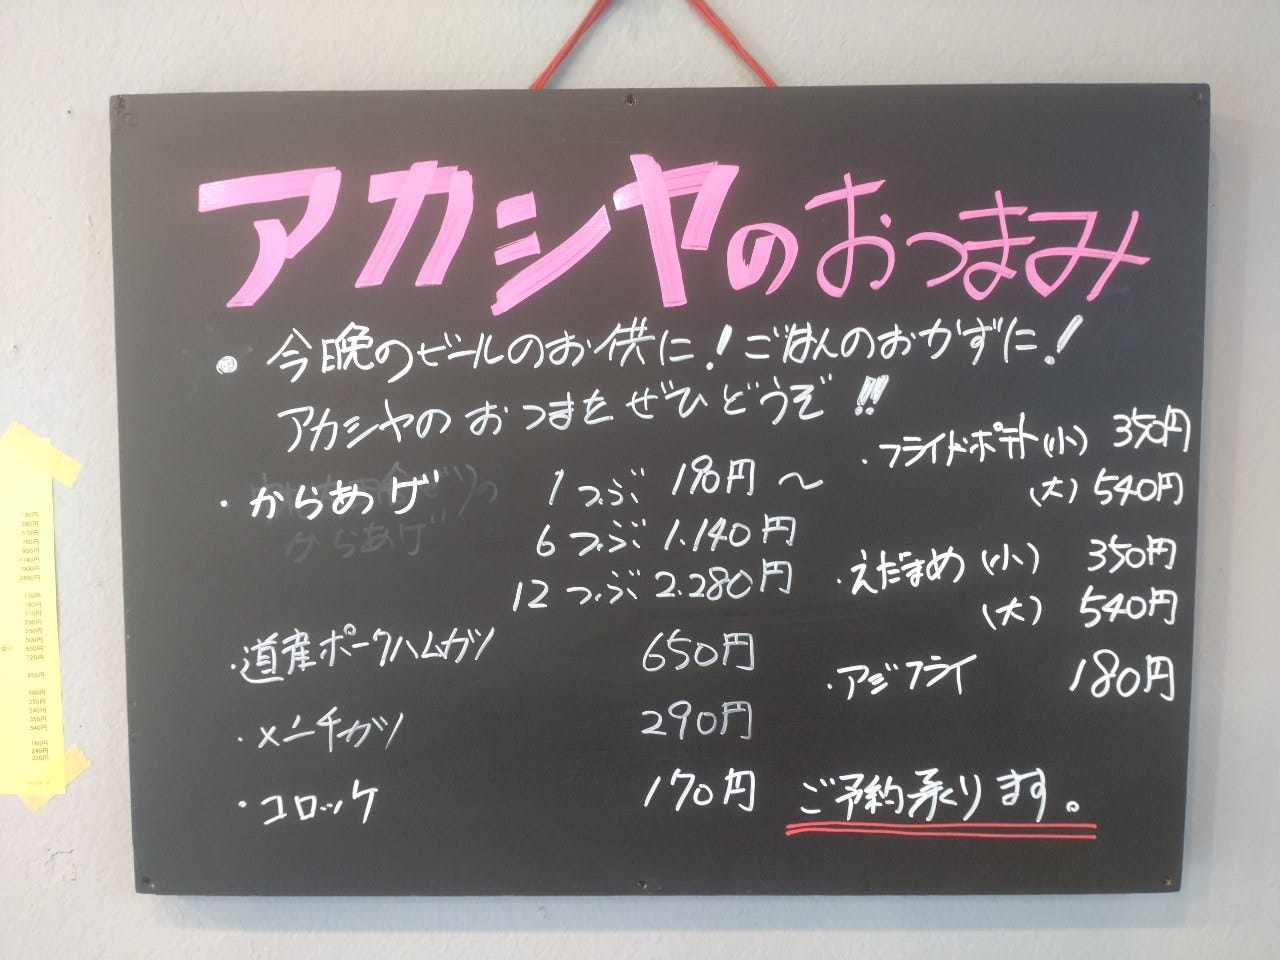 アカシヤのおつまみ
今晩のビールのお供に！ごはんのおかずに！
アカシヤのおつまをぜひどうぞ!!
・からあげ 1つぶ 190円～
からあげ
6つぶ 1.140円
12つぶ 2.280円
・道産ポークハムカツ 650円
・メンチカツ 290円
・コロッケ 170円
・フライドポテト(小) 350円
(大) 540円
・えだまめ(小) 350円
(大) 540円
・アジフライ 180円
ご予約承ります。